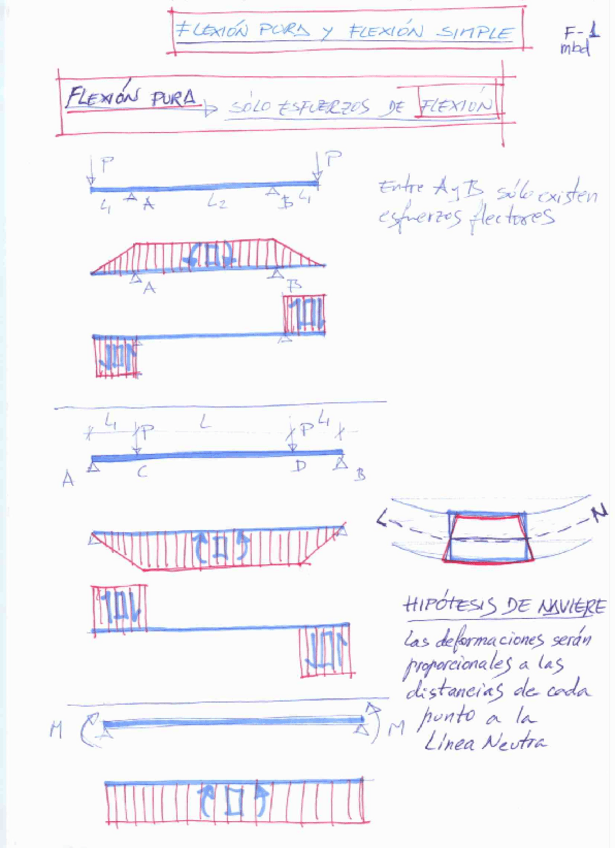 FLEXIÓN PURA y FLEXIÓN SIMPLE
F-1
mbd
FLEXIÓN PURA → SÓLO ESFUERZOS DE FLEXIÓN
P P
L1 A L2 B L1
Entre A y B sólo existen
esfuerzos flectores
A B
L1 P L P L1
A C D B
L N
HIPÓTESIS DE NAVIERE
Las deformaciones serán
proporcionales a las
distancias de cada
punto a la
Línea Neutra
M M